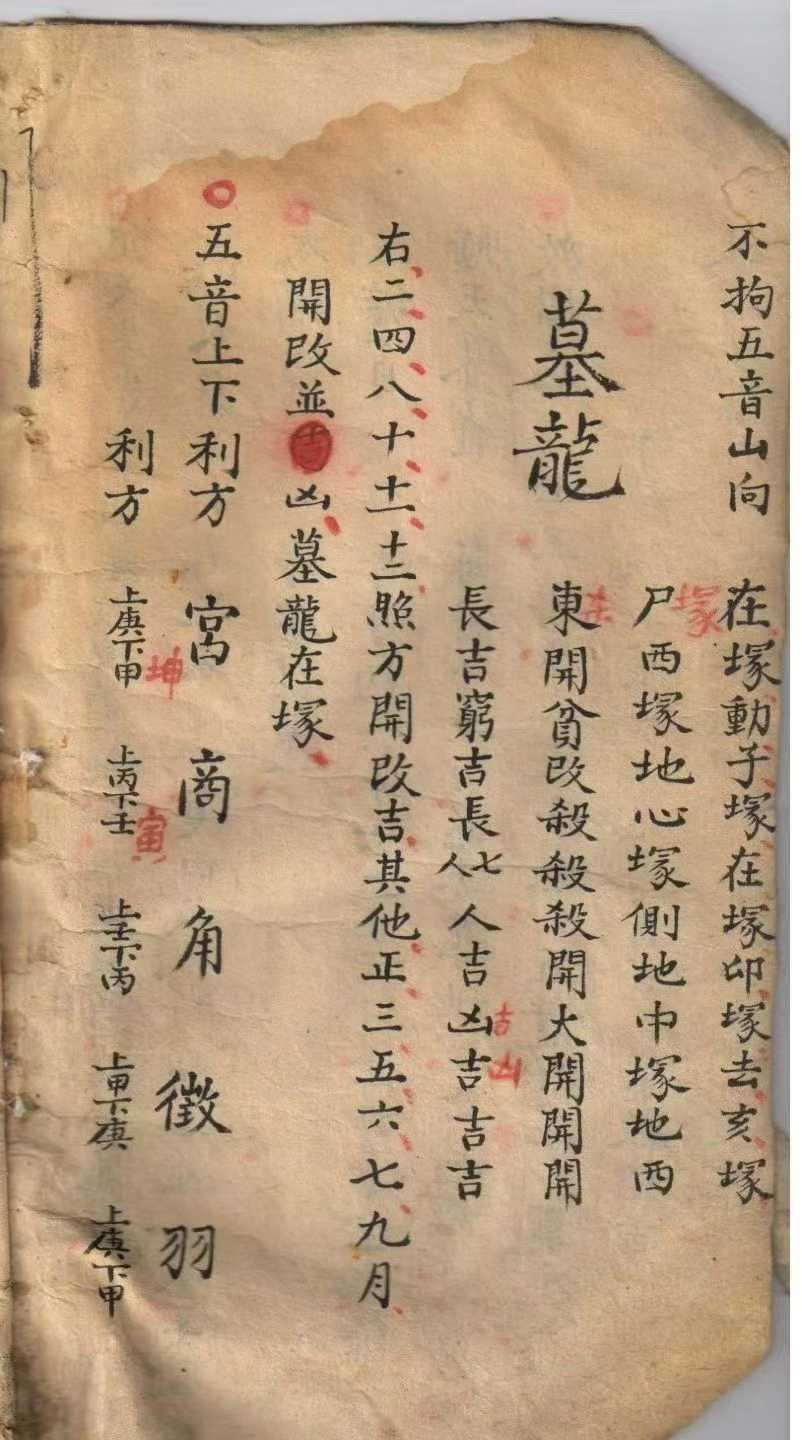 不拘五音山向
在塚動子塚在塚卯塚去亥塚
尸西塚地心塚側地中塚地西
塚
墓龍
東開貧改殺殺殺開大開開開
东
長吉窮吉長七人人吉凶吉吉吉
吉凶
右二四八十十一十二照方開改吉其他正三五六七九月
開改並凶墓龍在塚
五音上下利方 宮 商 角 徵 羽
利方 上庚下甲 上丙下壬 上壬下丙 上甲下庚 上庚下甲
坤
寅